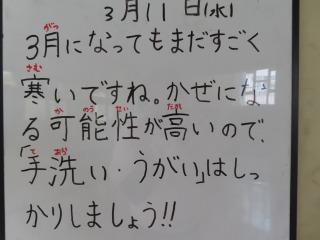 3月11日(水)
3月になってもまだすごく
寒いですね。かぜにな
る可能性が高いので、
「手洗い・うがい」はしっ
かりしましょう!!